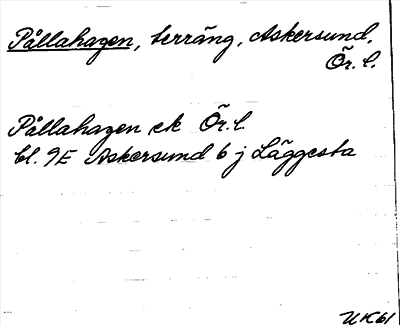 Pållahagen, terräng, Askersund,
Ör. l.
Pållahagen ek Ör. l.
bl. 9E Askersund 6 j Läggesta
UK61